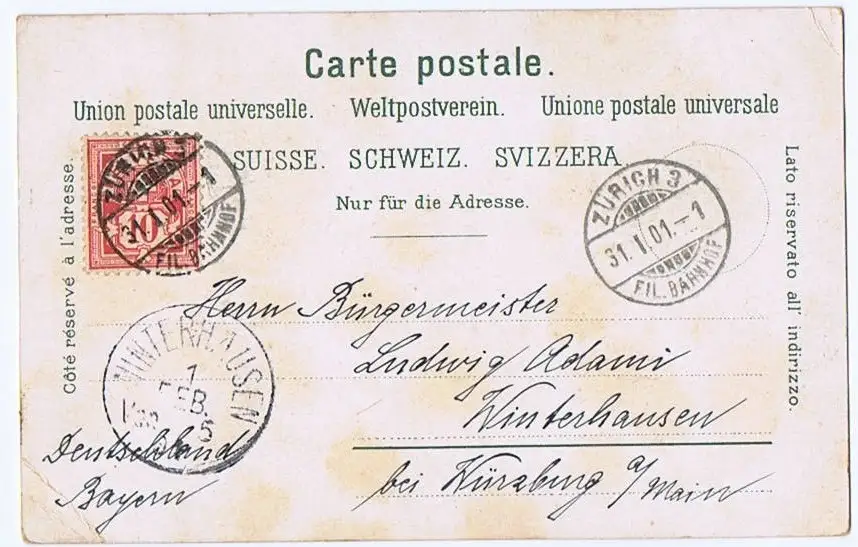 Carte postale.
Union postale universelle. Weltpostverein. Unione postale universale
SUISSE. SCHWEIZ. SVIZZERA.
Nur für die Adresse.
Côté réservé à l'adresse.
Lato riservato all' indirizzo.
ZÜRICH 3
31. I. 01. - 1
FIL. BAHNHOF
10
ZÜRICH 3
31. I. 01. - 1
FIL. BAHNHOF
WINTERHAUSEN
1
FEB.
5
Herrn Bürgermeister
Ludwig Adami
Winterhausen
bei Würzburg a/Main
Deutschland
Bayern